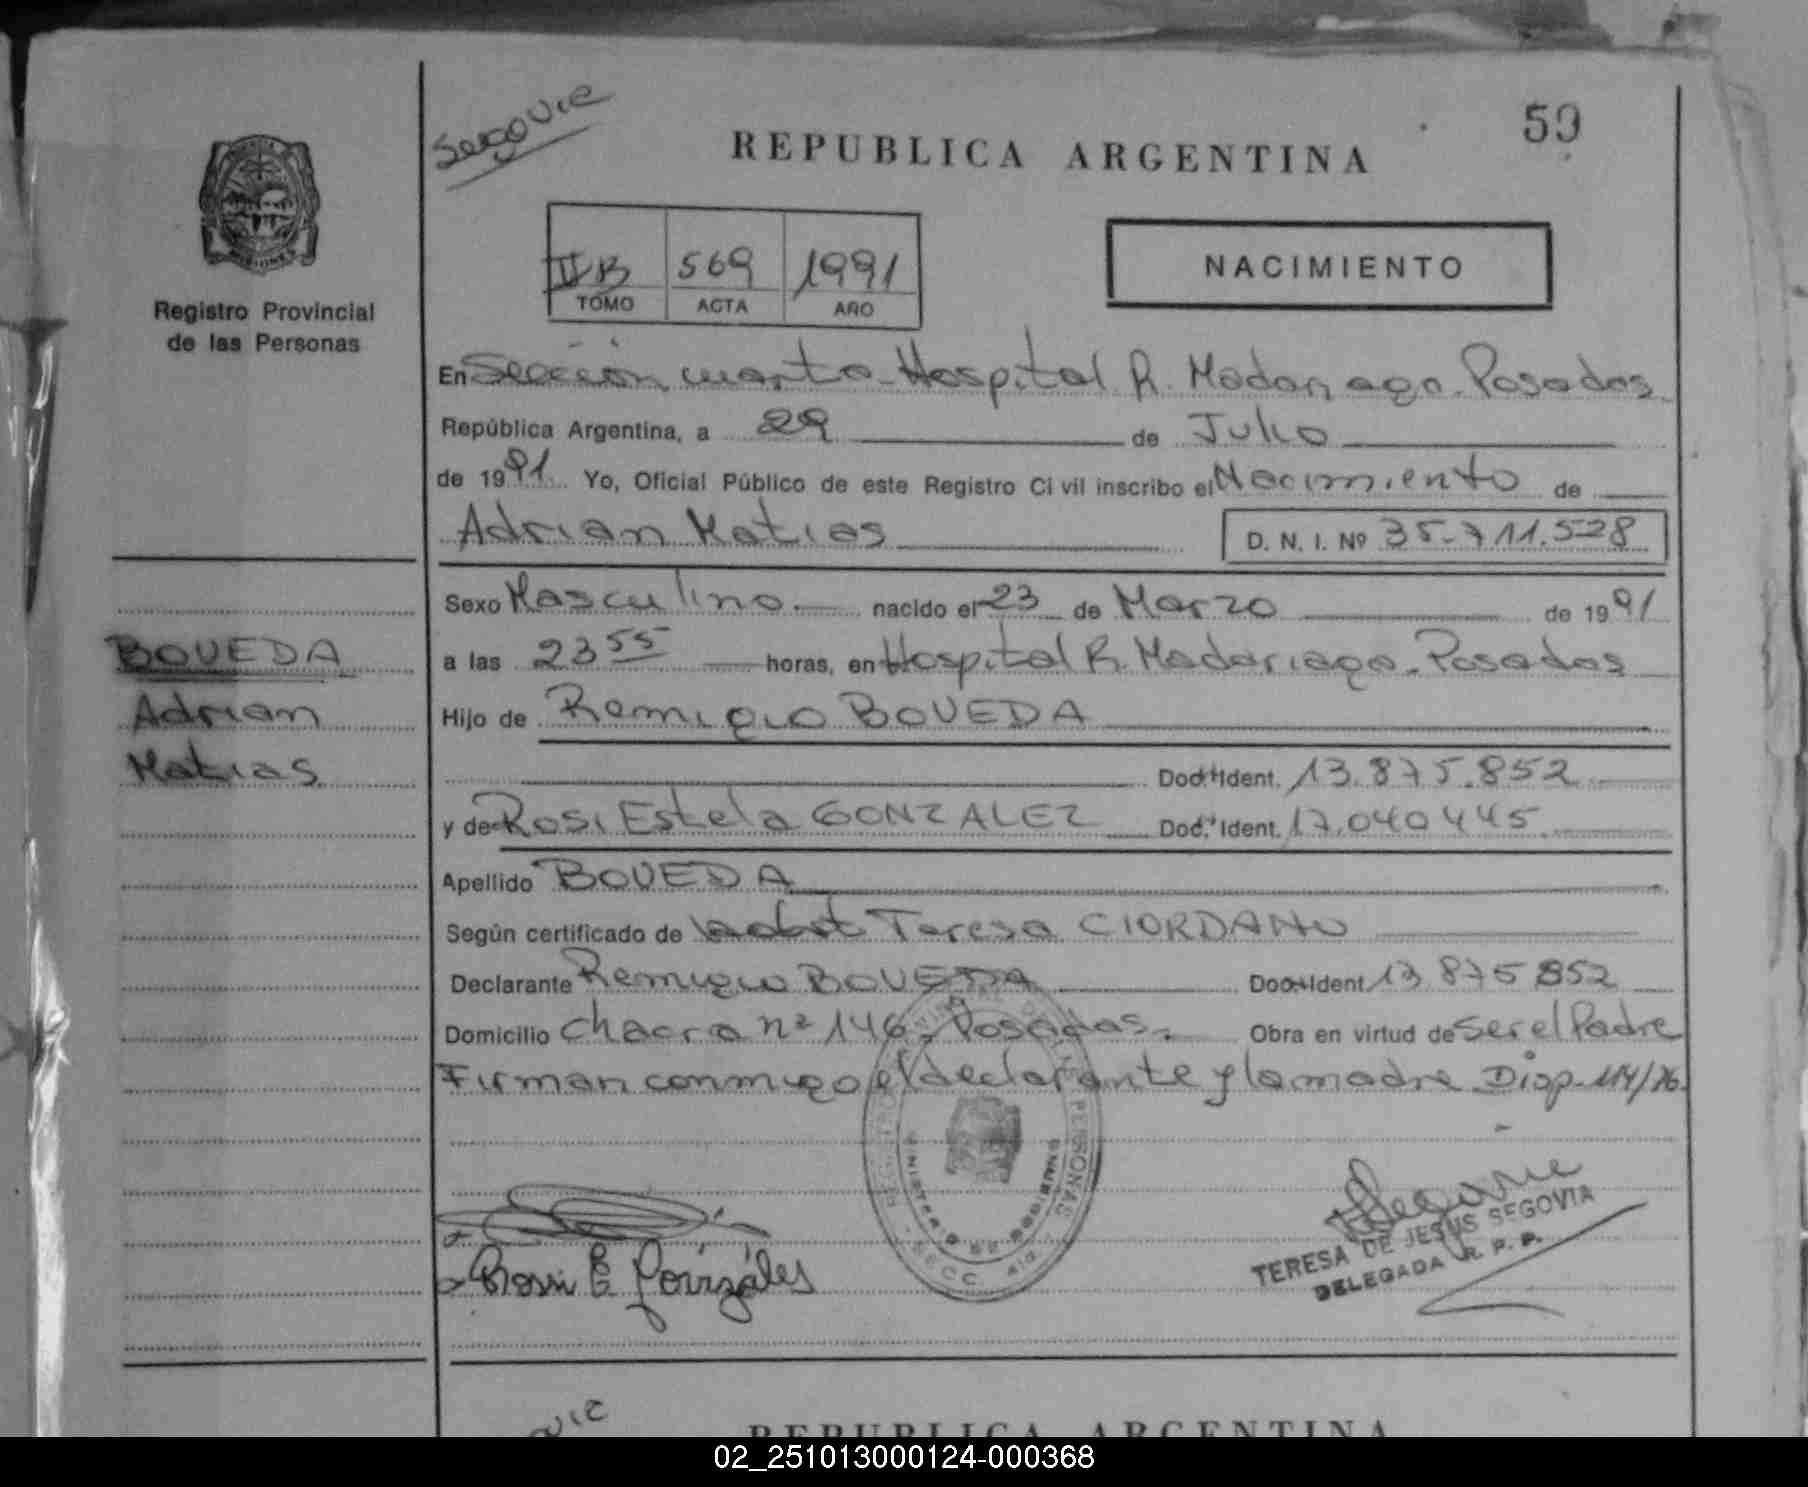 Segovia
REPUBLICA ARGENTINA
59
MISIONES
Registro Provincial
de las Personas
II B 569 1991
TOMO ACTA AÑO
NACIMIENTO
En Sección cuarta Hospital R. Madariaga. Posadas
República Argentina, a 29 de Julio
de 1991 Yo, Oficial Público de este Registro Civil inscribo el Nacimiento de
Adrian Matias D. N. I. Nº 35.711.528
Sexo Masculino nacido el 23 de Marzo de 1991
BOVEDA
Adrian
Matias
a las 23 55 horas, en Hospital R. Madariaga. Posadas
Hijo de Remigio BOVEDA
Doc. Ident. 13.875.852
y de Rosi Estela GONZALEZ Doc. Ident. 17.040.445
Apellido BOVEDA
Según certificado de Teresa CIORDANO
Declarante Remigio BOVEDA Doc. Ident 13.875852
Domicilio Chacra nº 146. Posadas. Obra en virtud de ser el Padre
Firman conmigo el declarante y la madre Disp. 114/76.
PERSONAS
Rosi E González
Segovia
TERESA DE JESUS SEGOVIA
DELEGADA R. P. P.
REPUBLICA ARGENTINA
02_251013000124-000368